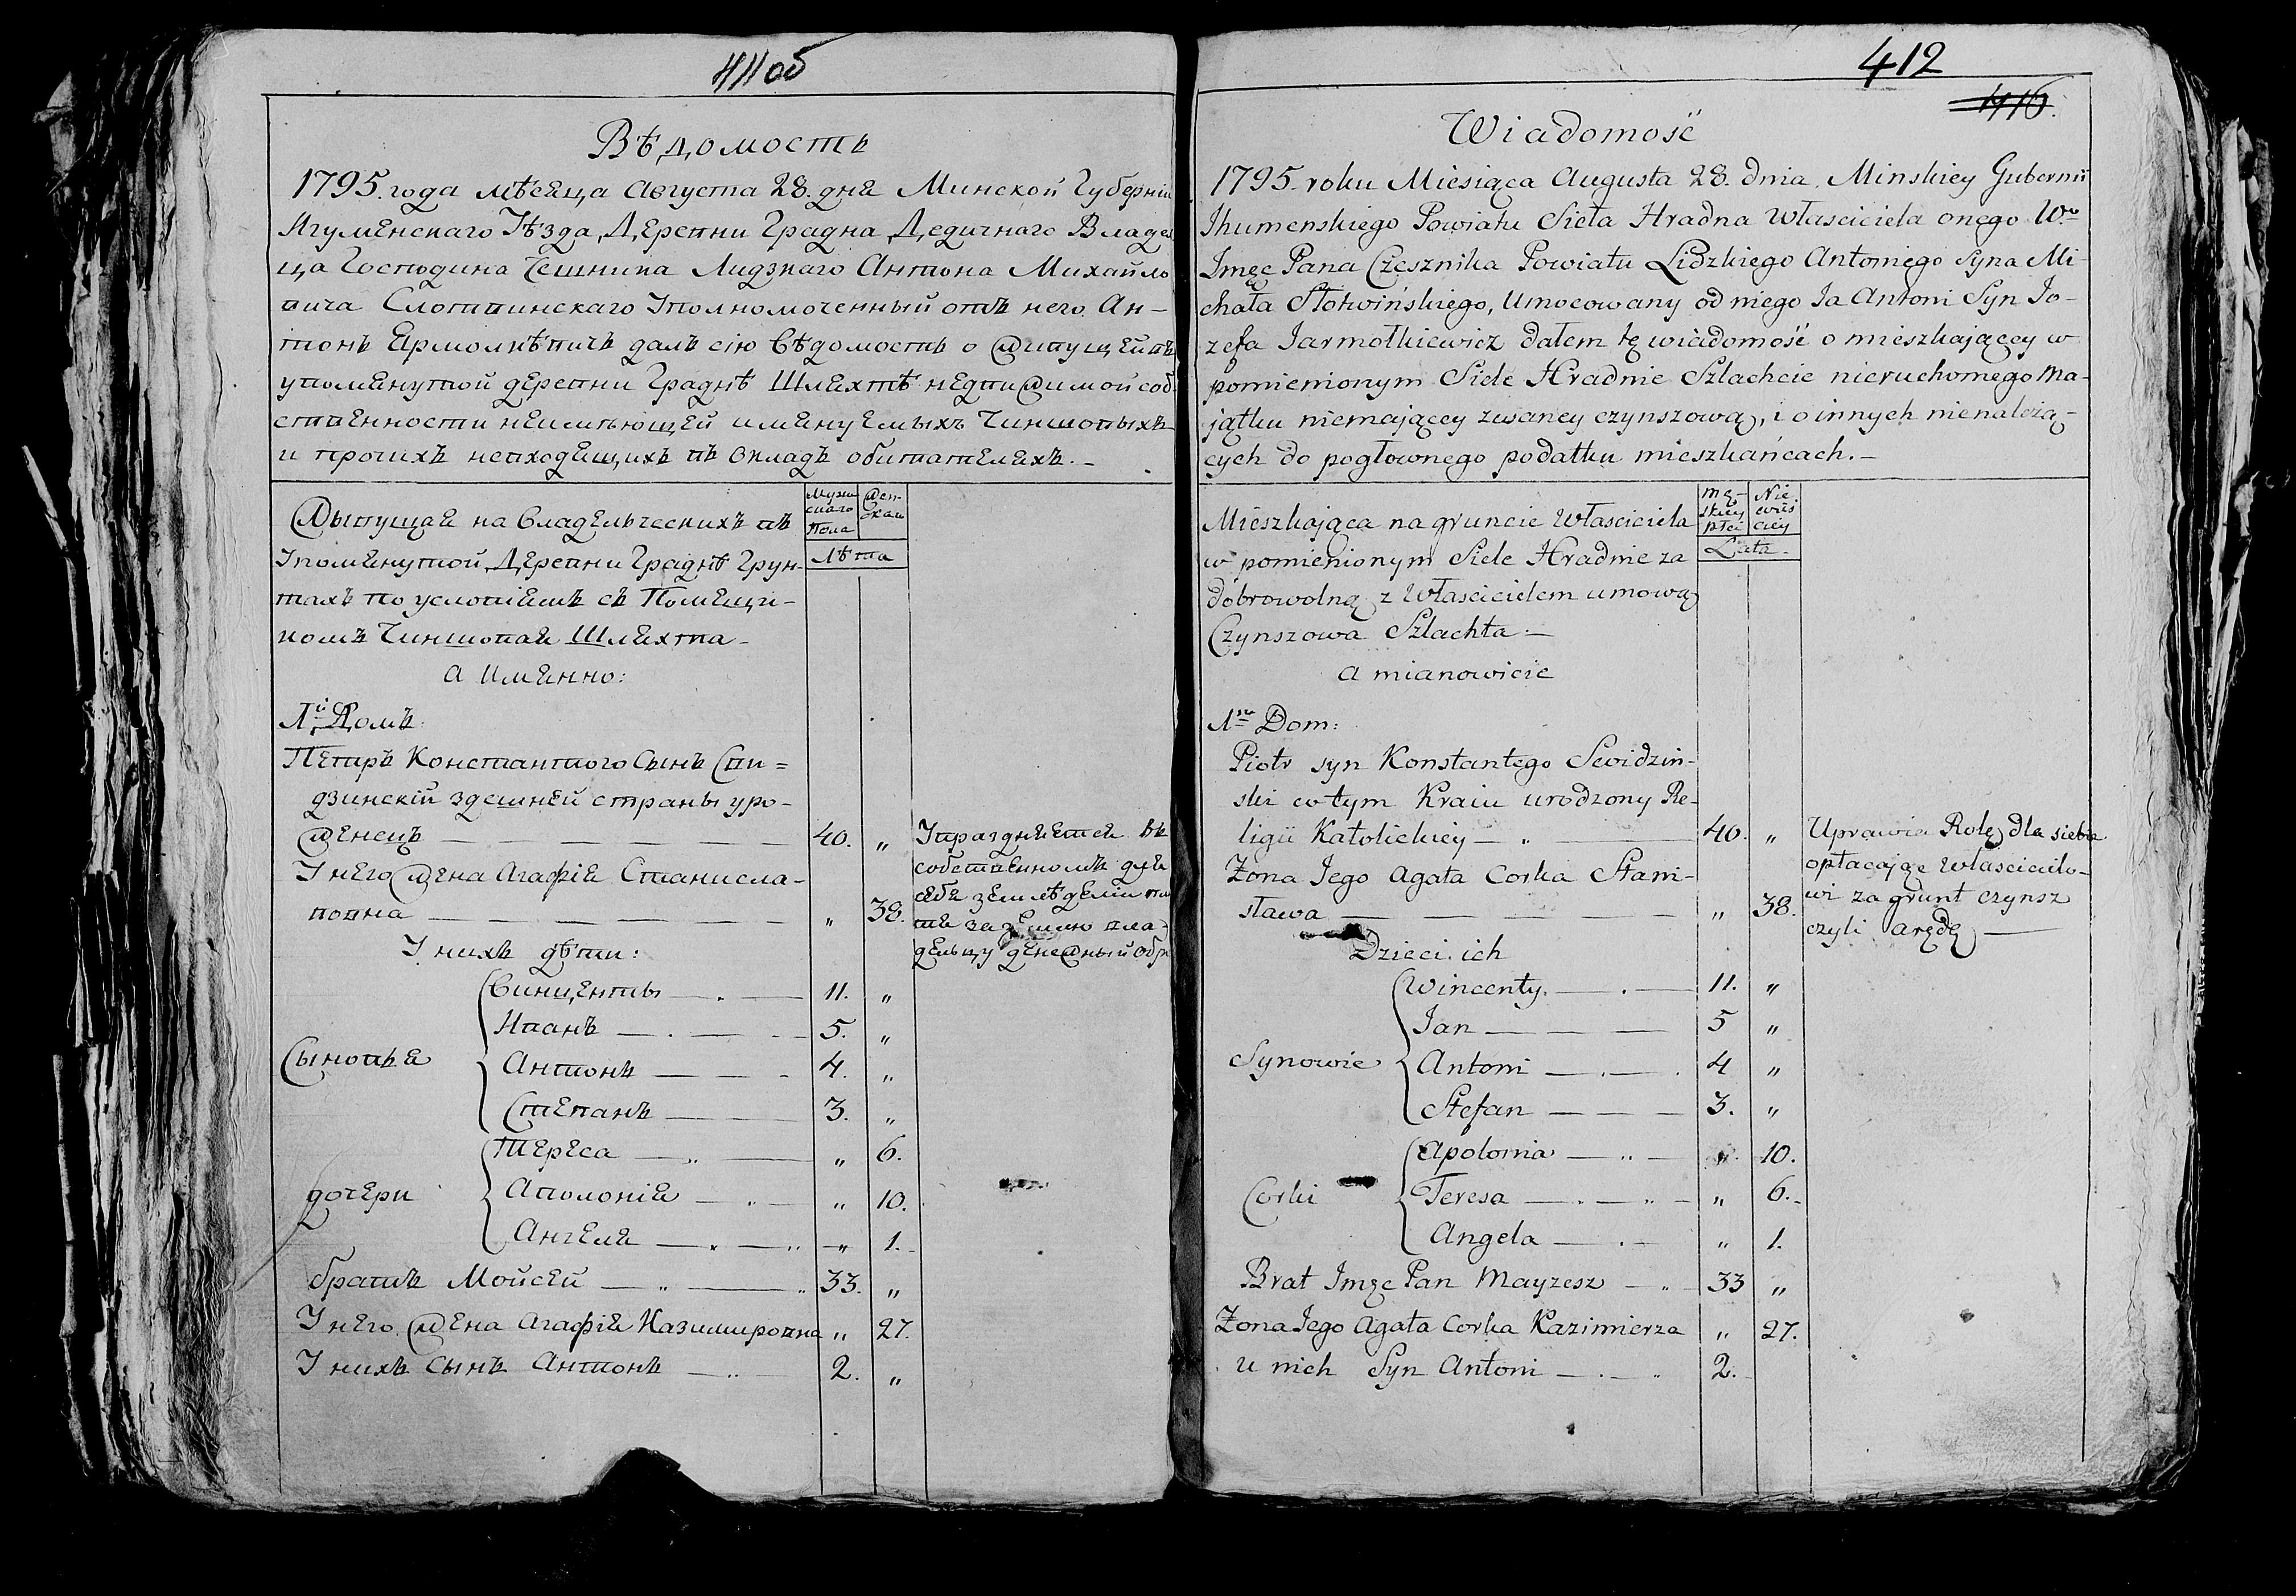 411об
Вѣдомость
1795. года мѣсяца Августа 28. дня Минской Губерніи
Игуменскаго Уѣзда, Деревни Градна, Дедичнаго Владел
ца Господина Чешника Лидзкаго Антона Михайло
вича Слотвинскаго Уполномоченный отъ него Ан-
тонъ Ярмолкѣвичъ далъ сію вѣдомость о живущей въ
упомянутой деревни Граднѣ Шляхтѣ недвижимой соб
ственности неимѣющей имянуемыхъ Чиншовыхъ
и прочихъ невходящихъ въ окладъ обитателяхъ.-
Живущая на владельческихъ въ
Упомянутой Деревни Граднѣ Грун-
тахъ по условіямъ съ Помещи-
комъ Чиншовая Шляхта-
а Имянно:
Мужи
скаго
Пола
Жен-
скаи
Лѣта
1й Домъ:
Петръ Константого Сынъ Сви=
дзинскій здешней страны уро-
женецъ — 40. „
У него жена Агафія Станисла-
вовна — „ 38.
Упражняется въ
собственномъ для
себя земледеліи пл
тя за землю вла-
дельцу денежный обр
У нихъ дѣти:
Сыновья
Винценты — 11. „
Иванъ — 5. „
Антонъ — 4. „
Степанъ — 3. „
дочери
Тереса — „ 6.
Аполонія — „ 10.
Ангеля — „ 1.
братъ Мойсей — 33. „
У него жена Агафія Казимировна „ 27.
У нихъ Сынъ Антонъ — 2. „
412
416.
Wiadomość
1795. roku Miesiąca Augusta 28. dnia. Minskiey Gubernii
Ihumenskiego Powiatu Sieła Hradna Własciciela onego Wo
Imgę Pana Czesznika Powiatu Lidzkiego Antoniego Syna Mi-
chała Słotwińskiego, Umocowany od niego Ja Antoni Syn Jo-
zefa Jarmołkiewicz dałem tę wiadomość o mieszkającey w
pomienionym Siele Hradnie Szlachcie nieruchomego Ma-
jątku niemającey zwaney czynszową, i o innych nienależą-
cych do pogłownego podatku mieszkańcach.-
Mieszkająca na gruncie Własciciela
w pomienionym Siele Hradnie za
dobrowolną z Włascicielem umową
Czynszowa Szlachta:-
a mianowicie
Mę-
skiey
płci
Nie
wies
ciey
Lata-
1szy Dom:
Piotr syn Konstantego Swidzin-
ski w tym Kraiu urodzony Re-
ligii Katolickiey — 40. „
Żona Jego Agata Corka Stani-
sława — „ 38.
Uprawia Rolę dla siebie
opłacając Własciciclo-
wi za grunt czynsz
czyli arędę —
Dzieci ich
Synowie
Wincenty. — 11. „
Jan — 5 „
Antoni — 4 „
Stefan — 3. „
Corki
Apolonia — „ 10.
Teresa — „ 6.-
Angela — „ 1.
Brat Imgę Pan Mayzesz — 33 „
Żona Jego Agata Corka Kazimierza „ 27.
u nich Syn Antoni — 2.-